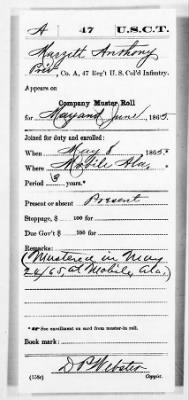 A 47 U.S.C.T.
Anthony
Priv, Co. A, 47 Reg't U. S. Col'd Infantry.
Appears on
Company Muster Roll
for May and June, 1865.
Joined for duty and enrolled:
When May 8, 1865.*
Where Mobile Ala,
Period 3 years.*
Present or absent Present
Stoppage, $ 100 for
Due Gov't $ 100 for
Remarks:
(Mustered in May
24/65 at Mobile, Ala.)
*See enrollment on card from muster-in roll.
Book mark:
D P Webster
(858c) Copyist.